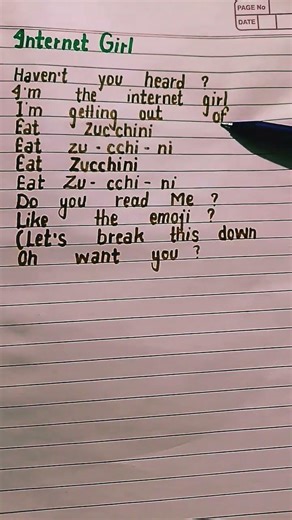 PAGE No
DATE
Internet Girl
Haven't you heard ?
I'm the internet girl
I'm getting out of
Eat Zucchini
Eat zu - cchi - ni
Eat Zucchini
Eat Zu - cchi - ni
Do you read Me ?
Like the emoji ?
(Let's break this down
Oh want you ?